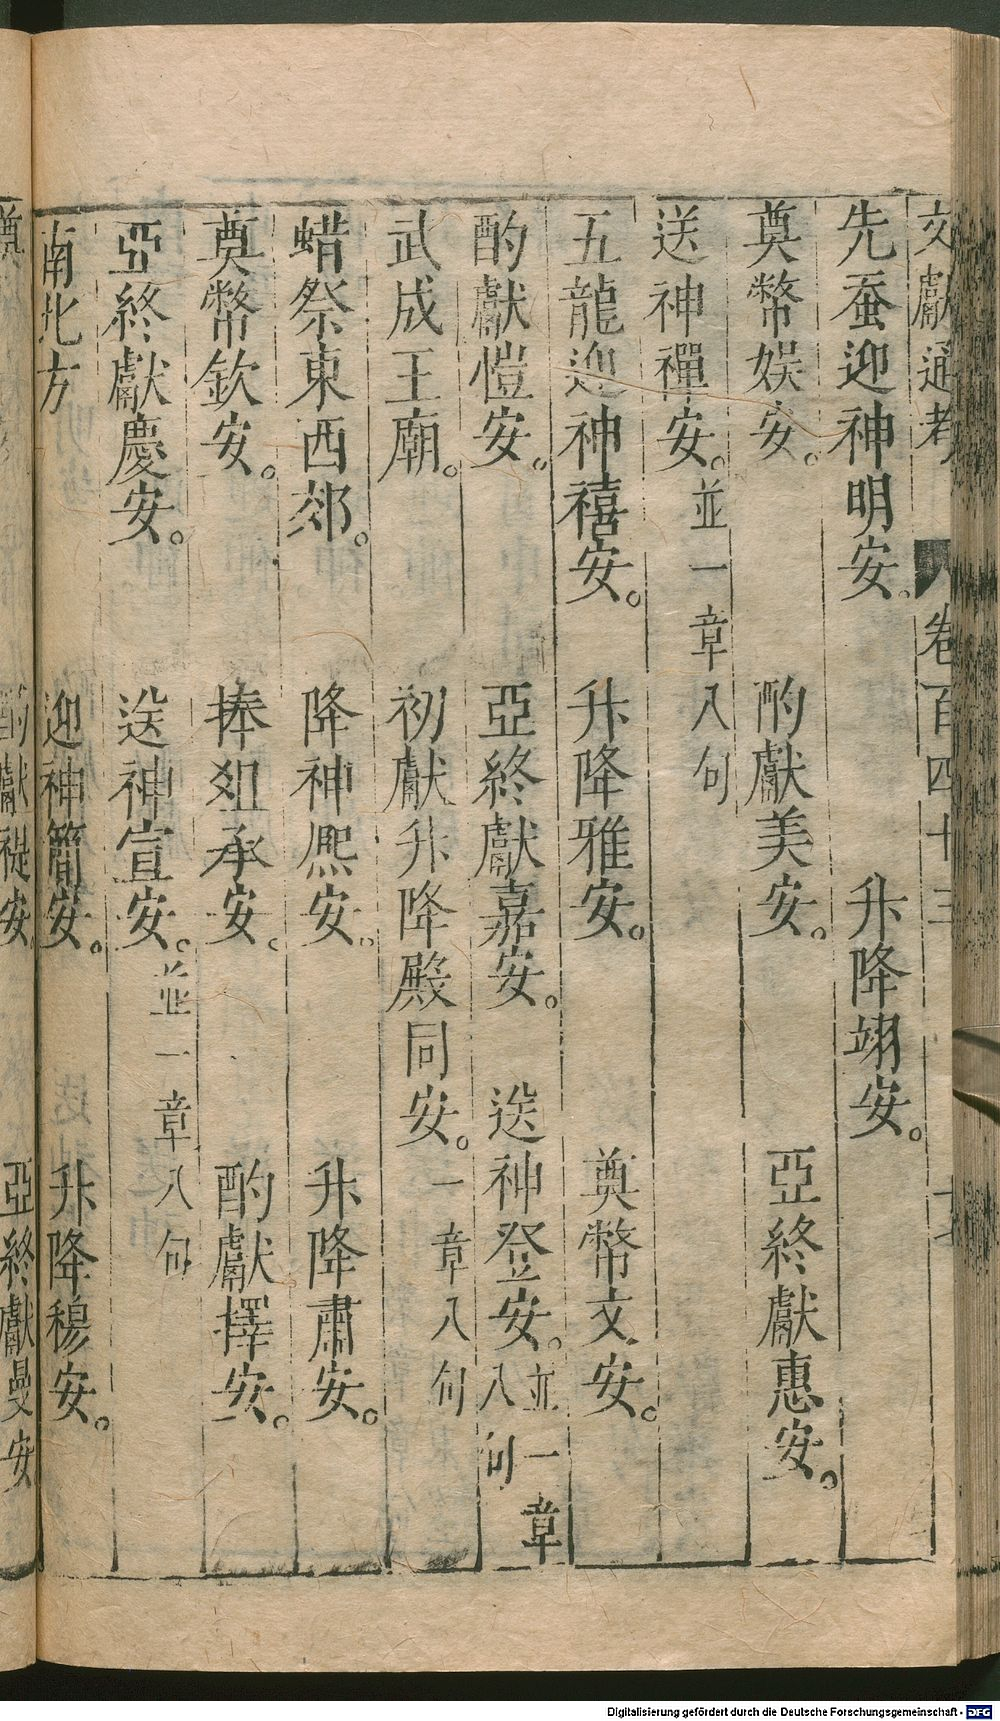 文獻通考 卷百四十三
先蚕迎神明安。 升降翊安。
奠幣娱安。 酌獻美安。 亞終獻惠安。
送神禪安。並一章八句
五龍迎神禧安。 升降雅安。 奠幣文安。
酌獻愷安。 亞終獻嘉安。 送神登安。並一章八句
武成王廟。 初獻升降殿同安。一章八句
蜡祭東西郊。 降神熈安。 升降肅安。
奠幣欽安。 捧俎承安。 酌獻擇安。
亞終獻慶安。 送神宣安。並一章八句
南北方 迎神簡安。 升降穆安。
奠 酌獻禔安 亞終獻曼安
Digitalisierung gefördert durch die Deutsche Forschungsgemeinschaft - DFG